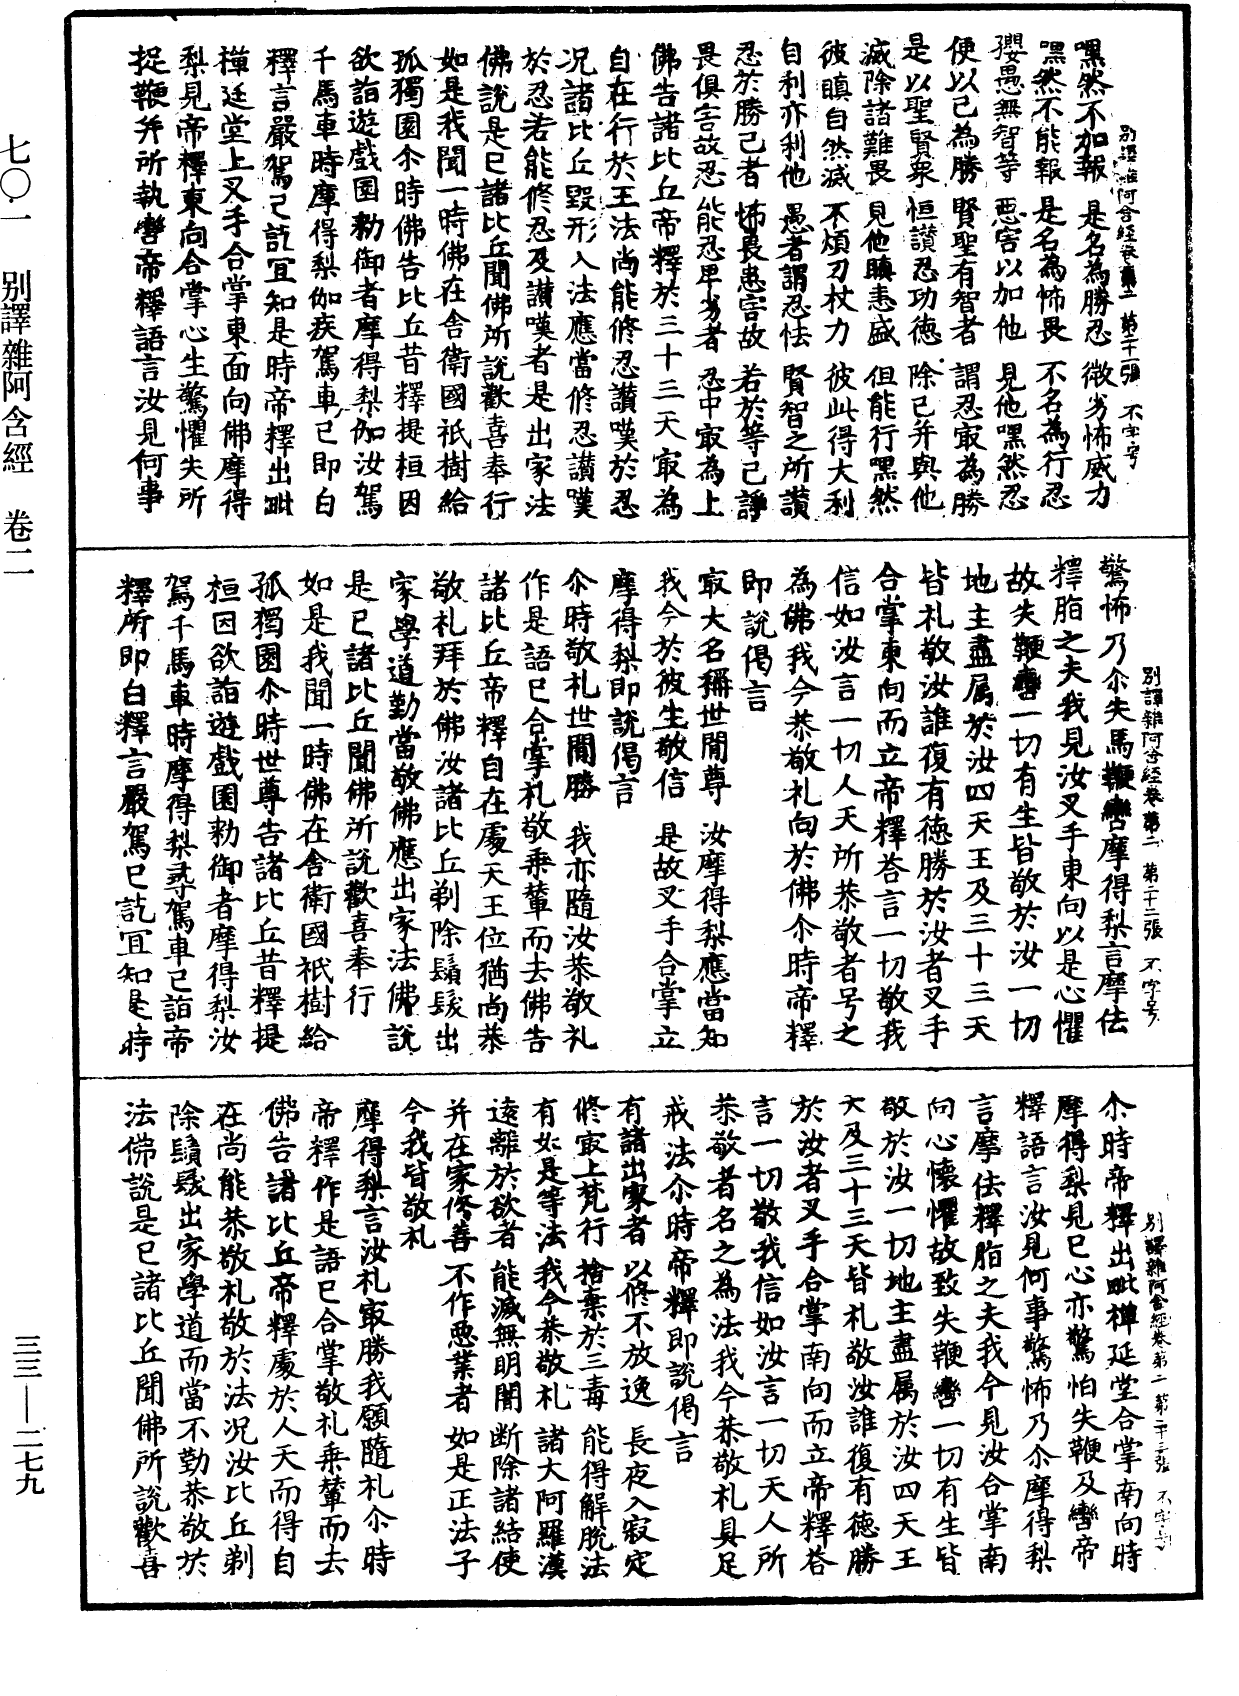 別譯雜阿含經卷第二 第二十一張 不字号
嘿然不加報 是名為勝忍 微劣怖威力
嘿然不能報 是名為怖畏 不名為行忍
嬰愚無智等 惡害以加他 見他嘿然忍
便以己為勝 賢聖有智者 謂忍㝡為勝
是以聖賢衆 恒讃忍功徳 除己并與他
滅除諸難畏 見他瞋恚盛 但能行嘿然
彼瞋自然滅 不煩刀杖力 彼此得大利
自利亦利他 愚者謂忍怯 賢智之所讃
忍於勝己者 怖畏患害故 若於等己諍
畏俱害故忍 能忍卑劣者 忍中㝡為上
佛告諸比丘帝釋於三十三天㝡為
自在行於王法尚能修忍讃嘆於忍
况諸比丘毀形入法應當修忍讃嘆
於忍若能修忍及讃嘆者是出家法
佛說是已諸比丘聞佛所說歡喜奉行
如是我聞一時佛在舍衛國祇樹給
孤獨園尒時佛告比丘昔釋提桓因
欲詣遊戲園勑御者摩得梨伽汝駕
千馬車時摩得梨伽疾駕車已即白
釋言嚴駕已訖宜知是時帝釋出毗
禪延堂上叉手合掌東面向佛摩得
梨見帝釋東向合掌心生驚懼失所
捉鞭并所執轡帝釋語言汝見何事
別譯雜阿含經卷第二 第二十二張 不字号
驚怖乃尒失馬鞭轡摩得梨言摩佉
釋脂之夫我見汝叉手東向以是心懼
故失鞭轡一切有生皆敬於汝一切
地主盡属於汝四天王及三十三天
皆礼敬汝誰復有徳勝於汝者叉手
合掌東向而立帝釋荅言一切敬我
信如汝言一切人天所恭敬者号之
為佛我今恭敬礼向於佛尒時帝釋
即說偈言
㝡大名稱世間尊 汝摩得梨應當知
我今於彼生敬信 是故叉手合掌立
摩得梨即說偈言
尒時敬礼世間勝 我亦隨汝恭敬礼
作是語已合掌礼敬乘輦而去佛告
諸比丘帝釋自在處天王位猶尚恭
敬礼拜於佛汝諸比丘剃除鬚髮出
家學道勤當敬佛應出家法佛說
是已諸比丘聞佛所說歡喜奉行
如是我聞一時佛在舍衛國祇樹給
孤獨園尒時世尊告諸比丘昔釋提
桓因欲詣遊戲園勑御者摩得梨汝
駕千馬車時摩得梨尋駕車已詣帝
釋所即白釋言嚴駕已訖宜知是時
別譯雜阿含經卷第二 第二十三張 不字号
尒時帝釋出毗禪延堂合掌南向時
摩得梨見已心亦驚怕失鞭及轡帝
釋語言汝見何事驚怖乃尒摩得梨
言摩佉釋脂之夫我今見汝合掌南
向心懷懼故致失鞭轡一切有生皆
敬於汝一切地主盡属於汝四天王
天及三十三天皆礼敬汝誰復有徳勝
於汝者叉手合掌南向而立帝釋荅
言一切敬我信如汝言一切天人所
恭敬者名之為法我今恭敬礼具足
戒法尒時帝釋即說偈言
有諸出家者 以修不放逸 長夜入寂定
修㝡上梵行 捨棄於三毒 能得解脫法
有如是等法 我今恭敬礼 諸大阿羅漢
遠離於欲者 能滅無明闇 断除諸結使
并在家修善 不作惡業者 如是正法子
今我皆敬礼
摩得梨言汝礼㝡勝我願隨礼尒時
帝釋作是語已合掌敬礼乘輦而去
佛告諸比丘帝釋處於人天而得自
在尚能恭敬礼敬於法况汝比丘剃
除鬚髮出家學道而當不勤恭敬於
法佛說是已諸比丘聞佛所說歡喜
七〇一 別譯雜阿含經 卷二
三三—二七九